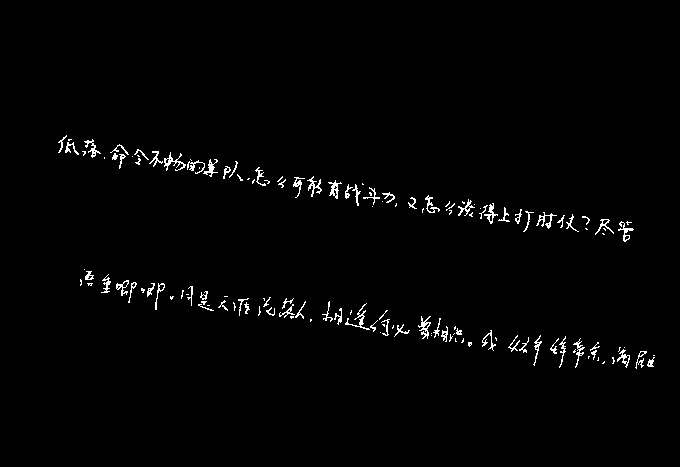 低落、命令不畅的军队,怎么可能有战斗力,又怎么谈得上打胜仗?尽管
语重唧唧。同是天涯沦落人,相逢何必曾相识。我从去年辞帝京,谪居